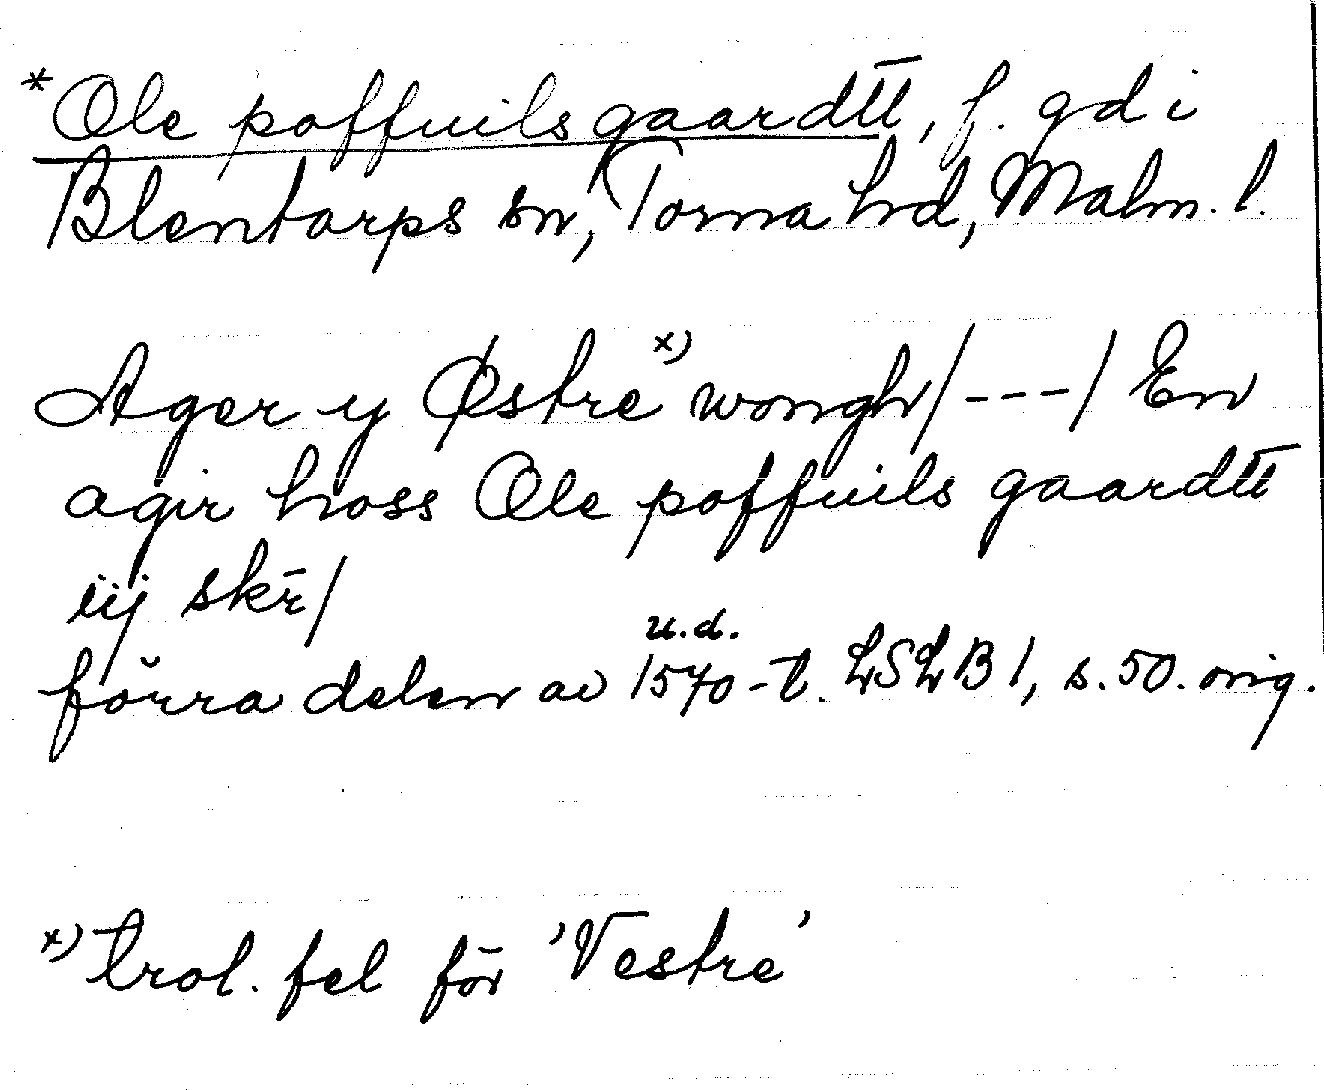 *Ole poffuils gaardtt, f. gd i
Blentarps sn, Torna hd, Malm. l.
Ager y Østre x) wongh/---/ En
agir hoss Ole poffuils gaardtt
iij skr̄/
förra delen av 1570-t. u.d. LSLB 1, s. 50. orig.
x) trol. fel för 'Vestre'